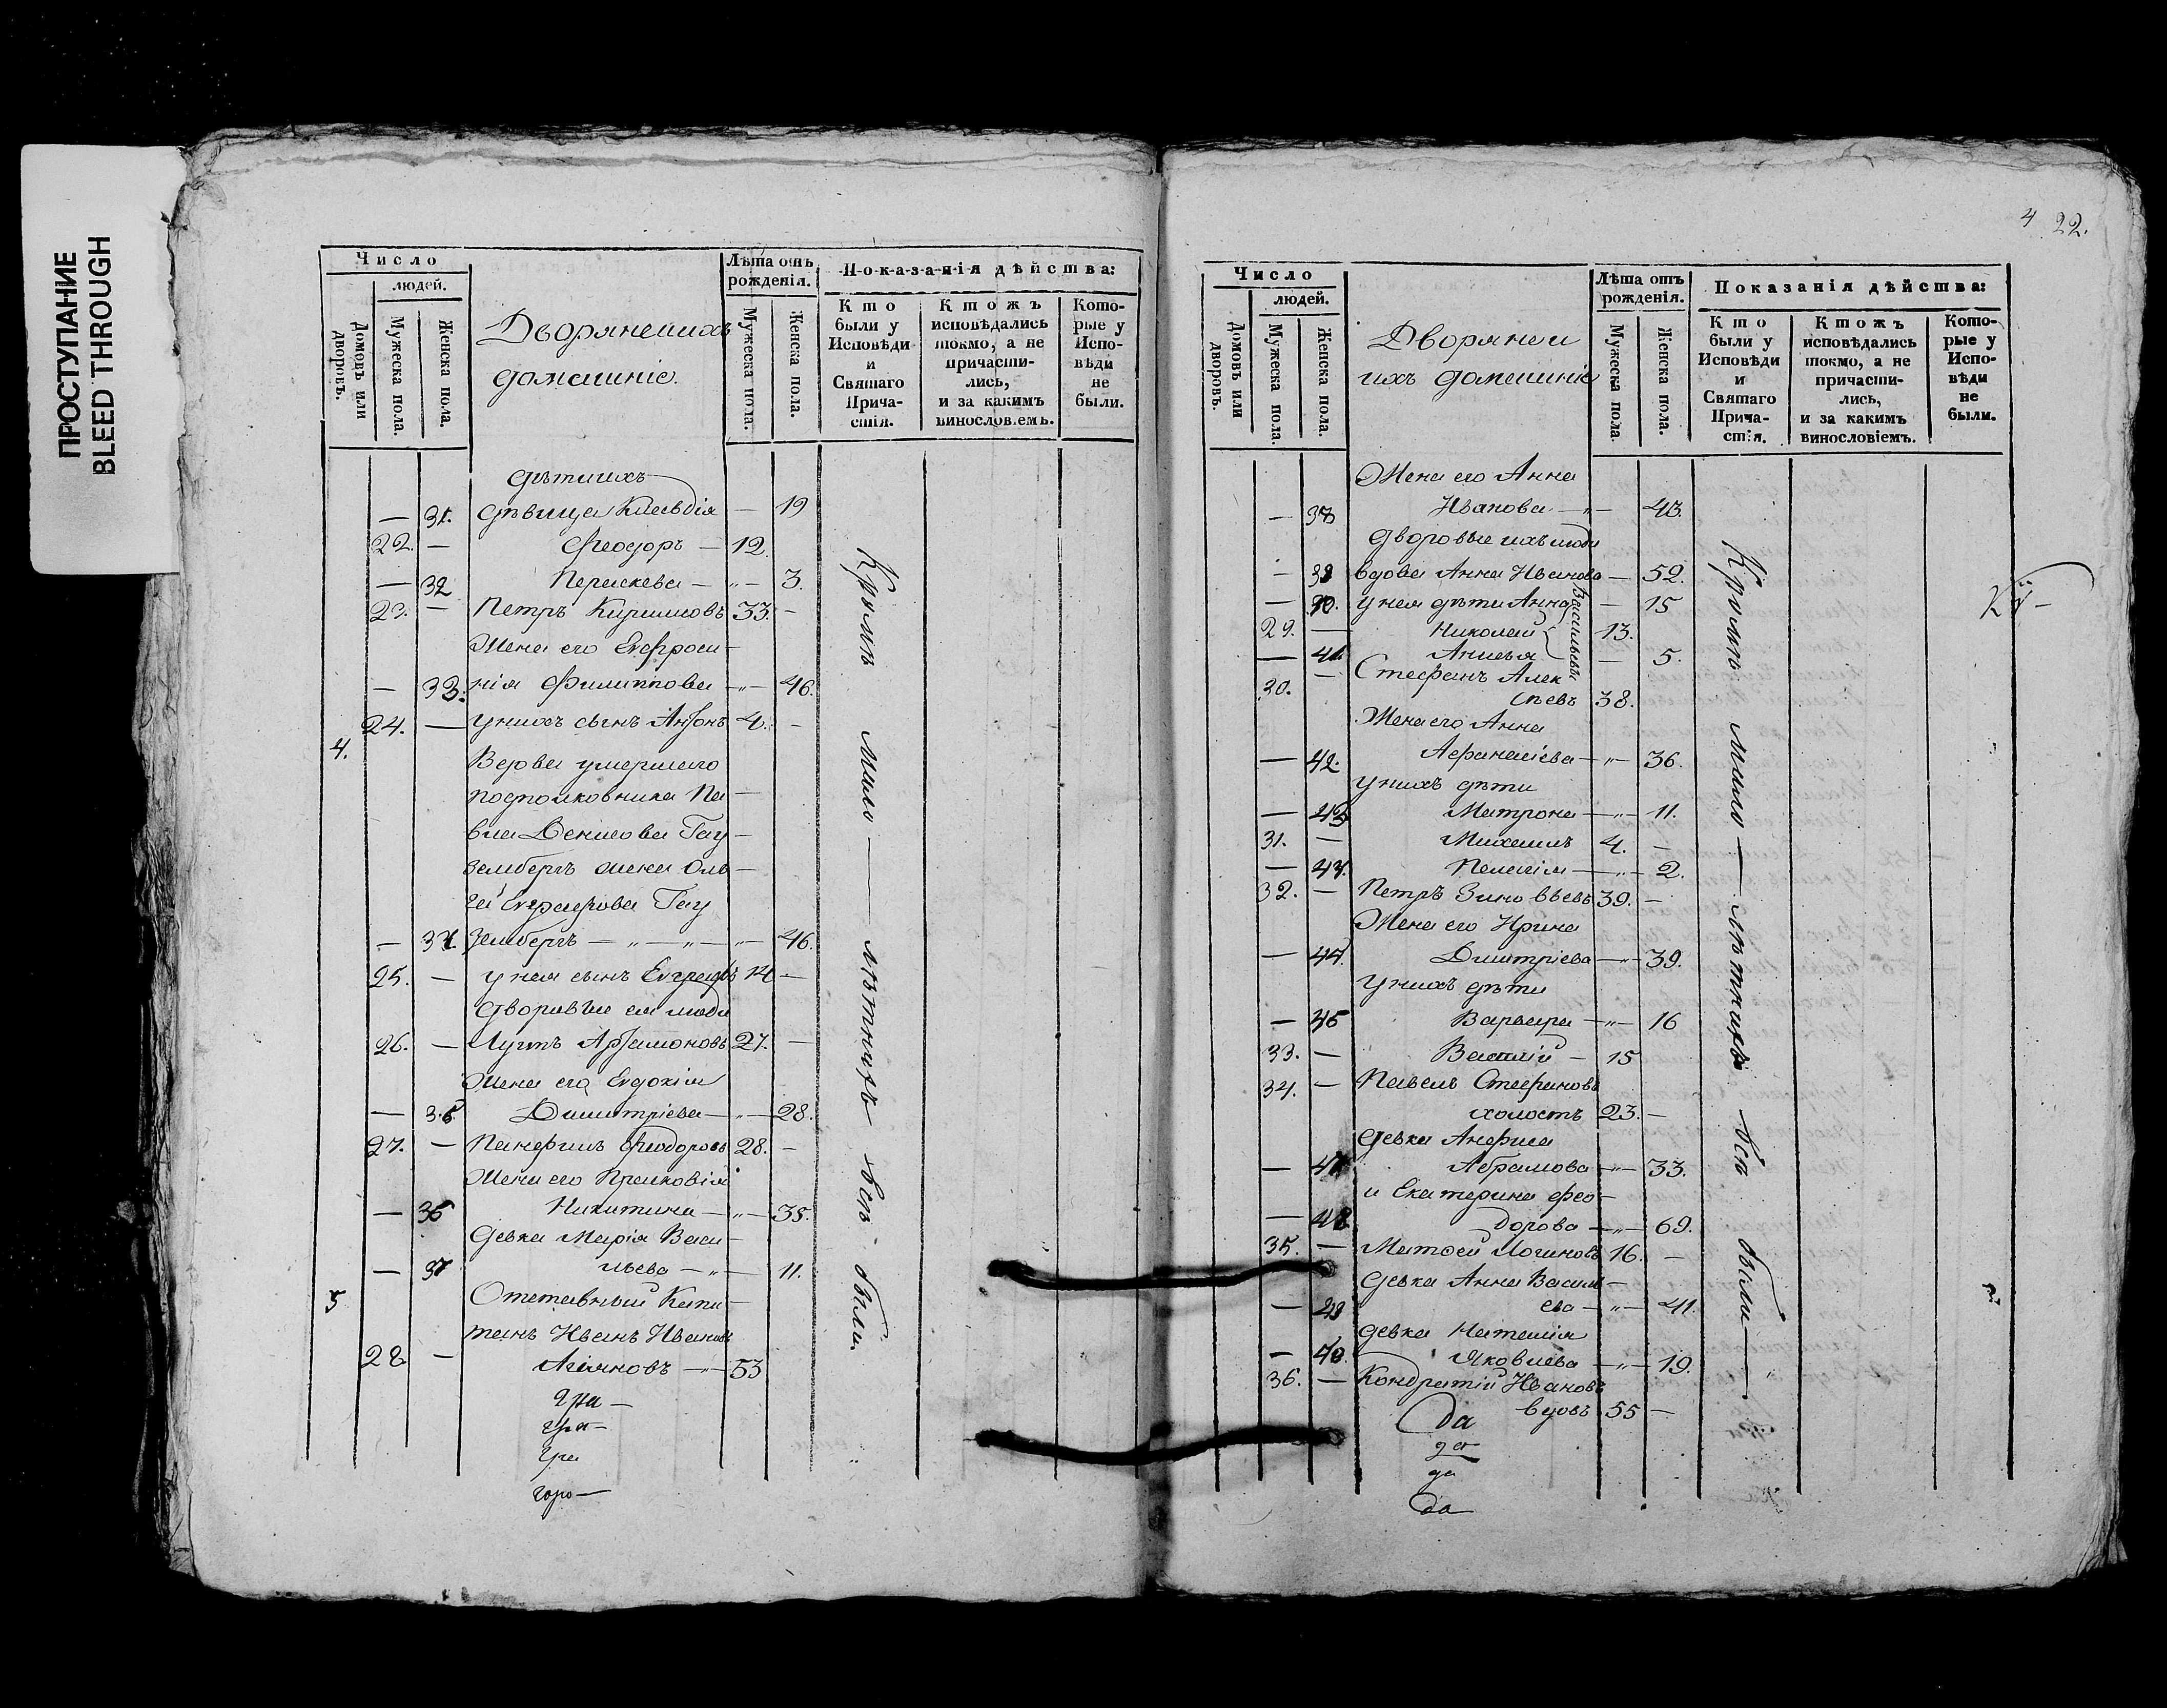 ПРОСТУПАНИЕ
BLEED THROUGH
Число
людей.
Домовъ или дворовъ.
Мужеска пола.
Женска пола.
Дворяне и ихъ
домашніе.
Лѣта отъ рожденія.
Мужеска пола.
Женска пола.
Показанія дѣйства:
Кто были у Исповѣди и Святаго Причастія.
Ктожъ исповѣдались токмо, а не причастились, и за какимъ винословіемъ.
Которые у Исповѣди не были.
дѣти ихъ
— 31. дѣвица Клавдія — 19
22. — Феодоръ — 12.
— 32 Параскева — „ — 3.
23. — Петръ Кириловъ 33. —
Жена его Евфроси—
— 33. нія Филиппова — „ — 46.
24. — у нихъ сынъ Антонъ 4. —
4.
Вдова умершаго
подполковника Па—
вла Денисова Гау—
зембергъ жена Оль—
га Евграфова Гау
— 34. зембергъ — „ — „ — „ — 46.
25. — у нея сынъ Евграфъ 14 —
дворовые ея люди
26. — Лупъ Артамоновъ 27. —
Жена его Евдокія
— 35 Димитріева — „ — 28.
27. — Панфилъ Феодоровъ 28. —
Жена его Прасковія
— 36 Никитина — „ — 35.
Девка Марія Васи—
— 37 льева — „ — 11.
5
Отставный Капи—
танъ Иванъ Ивановъ
28 — Агіяновъ — „ — 53
Гра—
гра—
гра
горо—
Кромѣ мало — лѣтнихъ всѣ были.
4 22.
Число
людей.
Домовъ или дворовъ.
Мужеска пола.
Женска пола.
Дворяне и
ихъ домашніе
Лѣта отъ рожденія.
Мужеска пола.
Женска пола.
Показанія дѣйства:
Кто были у Исповѣди и Святаго Причастія.
Ктожъ исповѣдались токмо, а не причастились, и за какимъ винословіемъ.
Которые у Исповѣди не были.
Жена его Анна
— 38 Иванова — „ — 43.
дворовые ихъ люди
— 39 вдова Анна Иванова — 52.
— 40. у нея дѣти Анна — 15
29. — Николай 13.
Васильевы
— 41 Анисья — 5.
30. — Стефанъ Алек
сѣевъ 38.
Жена его Анна
— 42. Афанасіева — „ — 36.
у нихъ дѣти
— 43 Матрона — „ — 11.
31. — Михаилъ 4. —
— 44. Пелагія — „ — 2.
32. — Петръ Зиновьевъ 39. —
Жена его Ирина
— 44. Димитріева — „ — 39.
у нихъ дѣти
— 45 Варвара — „ — 16
33. — Василій — 15
34. — Павелъ Стефановъ
холостъ 23. —
девка Анфиса
— 47 Абрамова — „ — 33.
и Екатерина Фео—
— 48 дорова — „ — 69.
35. — Матвей Логиновъ 16. —
девка Анна Василь—
— 49 ева — „ — 41.
девка Наталія
— Яковлева — „ — 19.
36. — Кондратій Ивановъ
вдовъ 55 —
Да
да
да
да
Кромѣ мало — лѣтнихъ всѣ были —